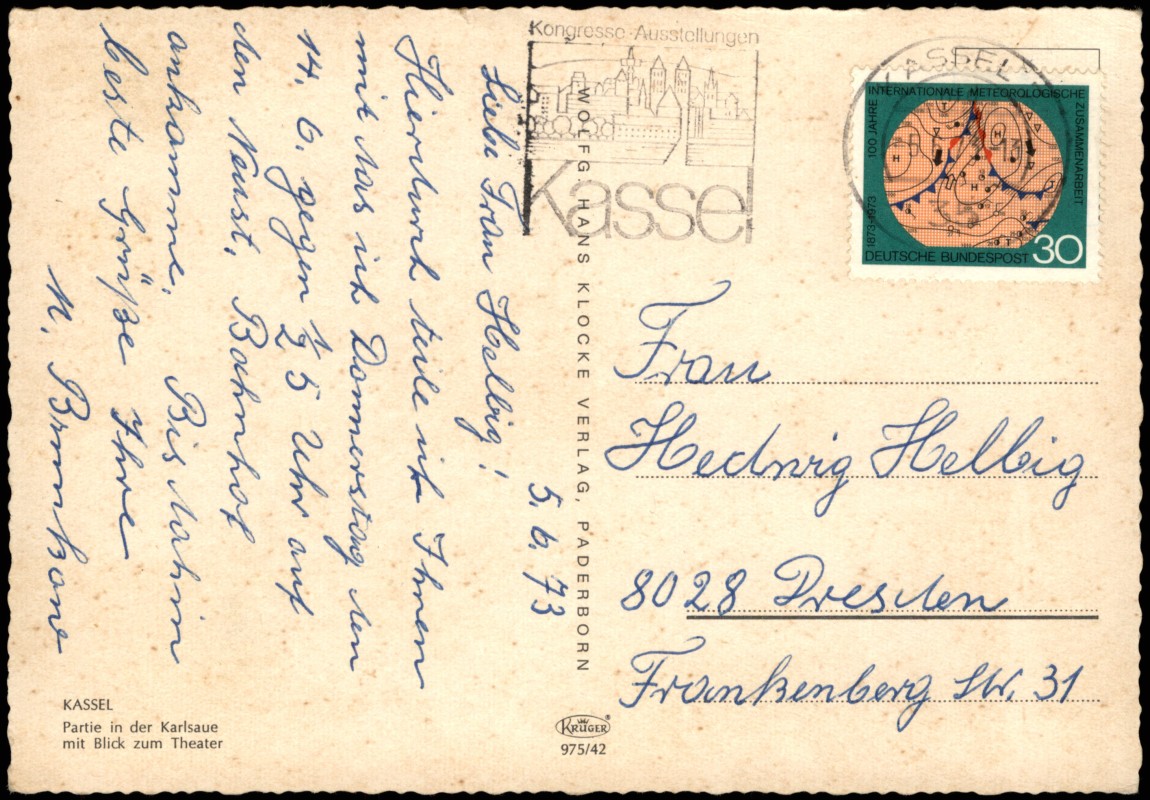 Kongresse · Ausstellungen
Kassel
KASSEL
100 JAHRE INTERNATIONALE METEOROLOGISCHE ZUSAMMENARBEIT
1873-1973
DEUTSCHE BUNDESPOST 30
5. 6. 73
Liebe Frau Helbig!
Hierdurch teile ich Ihnen
mit das ich Donnerstag den
14. 6. gegen ½ 5 Uhr auf
den Neust. Bahnhof
ankomme. Bis dahin
beste Grüße Ihre
M.
WOLFG. HANS KLOCKE VERLAG, PADERBORN
Frau
Hedwig Helbig
8028 Dresden
Frankenberg Str. 31
KASSEL
Partie in der Karlsaue
mit Blick zum Theater
KRÜGER®
975/42